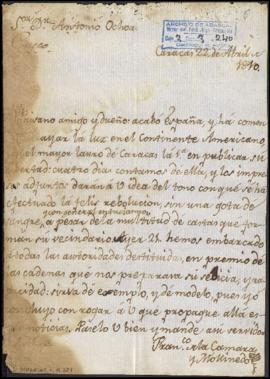 Sor. Dn. Antonio Ochoa
ARCHIVO
Caracas 22 de Abril de
1810.
Paisano amigo y dueño: acabó España, y ha comen
ayar la luz en el Continente Americano,
el mayor lauro de Caracas la 1a. en publicar su
libertad: quatro dias contamos de ella, y los impre
adjuntos darán a V idea del tono con que se ha
efectuado la feliz revolucion, sin una gota de
sangre, y con general entusiasmo
a pesar de la multitud de castas que for
man su vecindario. Ayer 21 hemos embarcado
á todas las autoridades destituidas, en premio de
las cadenas que nos preparava su sevicia, y
cidad: sirva de exemplo, y de modelo, pues yo
concluyo con rogar á V que propague allá es
noticias. Páselo V bien y mande á su servidor
Franco. de la Camara
y Mollinedo